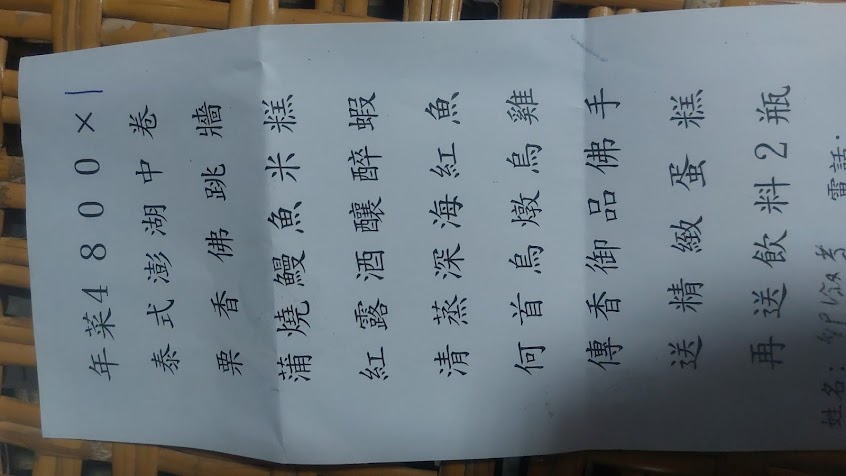 年菜4800×1
泰式澎湖中卷
栗香佛跳牆
蒲燒鰻魚米糕
紅露酒釀醉蝦
清蒸深海紅魚
何首烏燉烏雞
傳香御品佛手
送精緻蛋糕
再送飲料2瓶
姓名: 電話: